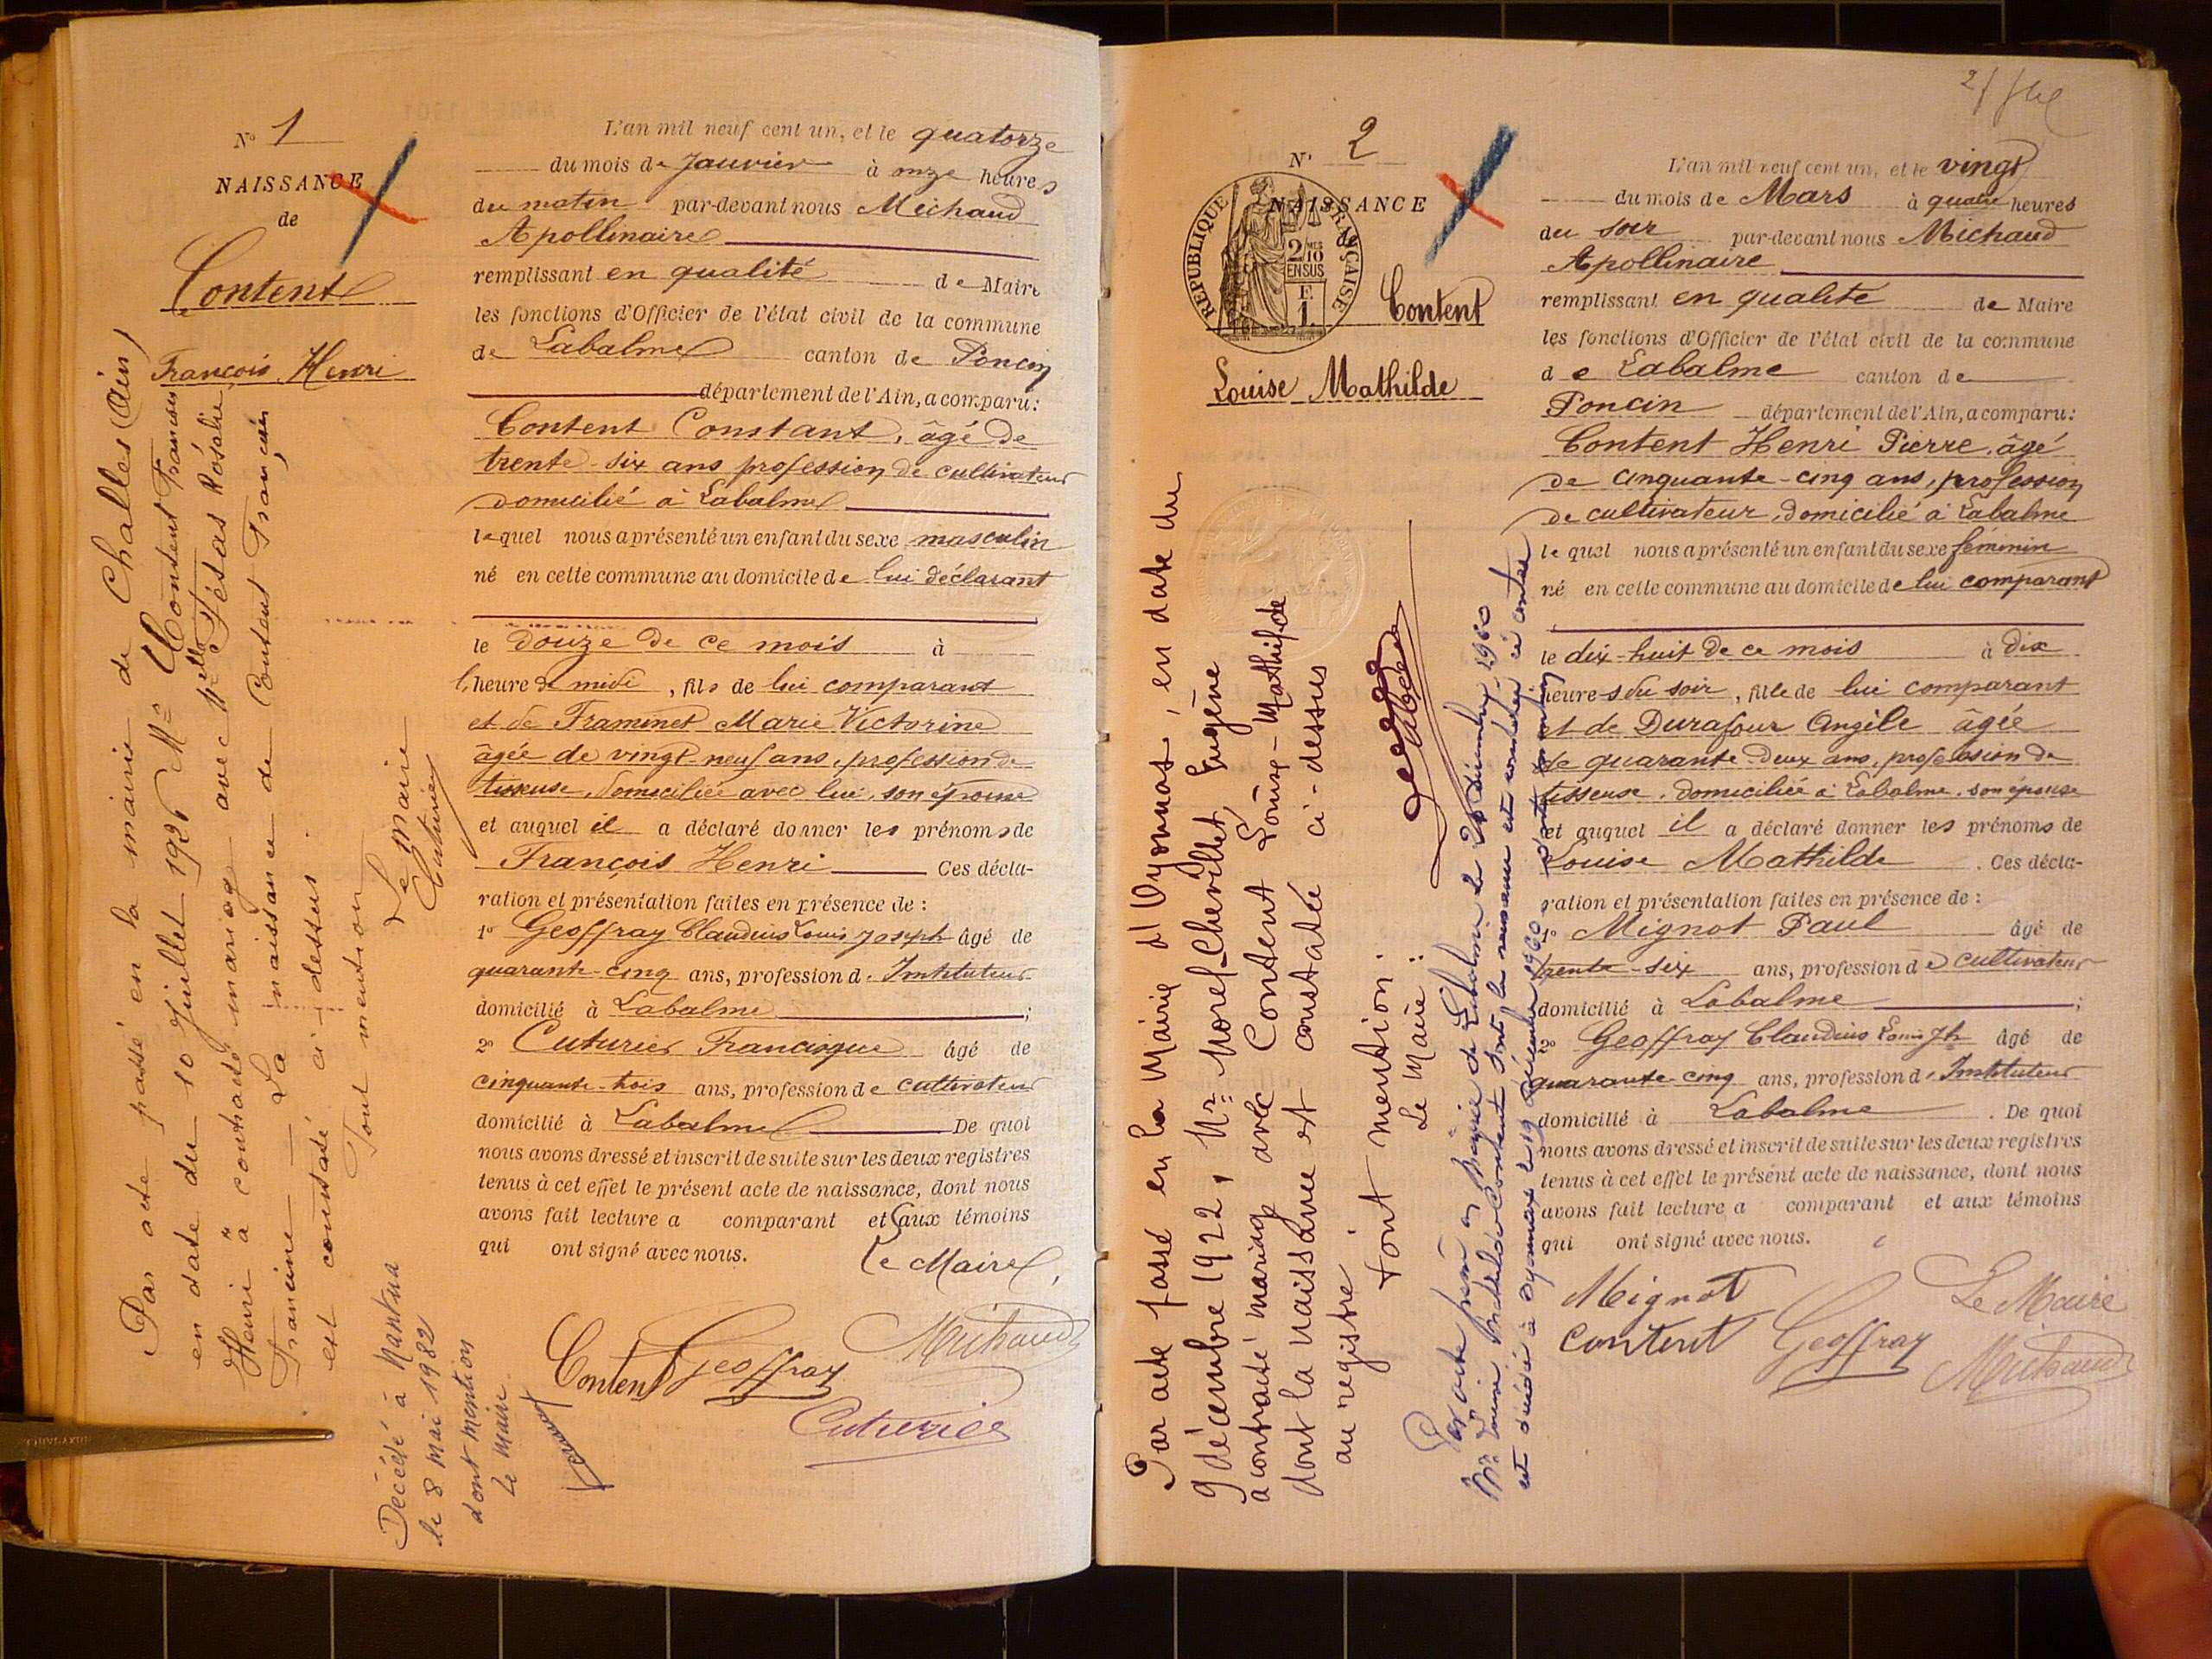 N° 1
NAISSANCE
de
Content
François Henri
L'an mil neuf cent un, et le quatorze
du mois de Janvier à onze heures
du matin par-devant nous Michaud
Apollinaire
remplissant en qualité de Maire
les fonctions d'Officier de l'état civil de la commune
de Labalme canton de Poncin
département de l'Ain, a comparu:
Content Constant, âgé de
trente-six ans profession de cultivateur
domicilié à Labalme
lequel nous a présenté un enfant du sexe masculin
né en cette commune au domicile de lui déclarant
le douze de ce mois à
l'heure de midi, fils de lui comparant
et de Framinet Marie Victorine
âgée de vingt-neuf ans, profession de
tisseuse, domiciliée avec lui, son épouse
et auquel il a déclaré donner les prénoms de
François Henri Ces décla-
ration et présentation faites en présence de :
1° Geoffray Claudius Louis Joseph âgé de
quarante-cinq ans, profession d'Instituteur
domicilié à Labalme ;
2° Cuturier Francisque âgé de
cinquante-trois ans, profession de cultivateur
domicilié à Labalme De quoi
nous avons dressé et inscrit de suite sur les deux registres
tenus à cet effet le présent acte de naissance, dont nous
avons fait lecture a comparant et aux témoins
qui ont signé avec nous.
Le Maire,
Content Geoffray Michaud
Cuturier
Par acte passé en la mairie de Challes (Ain)
en date du 10 Juillet 1926 Mr Content François
Henri a contracté mariage avec Melle Tésas Rosalie
Francine — La naissance de Content François
est constaté ci-dessus
Dont mention
Le maire
Cuturier
Décédé à Nantua
le 8 mai 1982
dont mention
Le maire
N° 2
NAISSANCE
de
REPUBLIQUE FRANÇAISE
2/10 EN SUS
Content
Louise Mathilde
L'an mil neuf cent un, et le vingt
du mois de Mars à quatre heures
du soir par-devant nous Michaud
Apollinaire
remplissant en qualité de Maire
les fonctions d'Officier de l'état civil de la commune
de Labalme canton de
Poncin département de l'Ain, a comparu:
Content Henri Pierre, âgé
de cinquante-cinq ans, profession
de cultivateur, domicilié à Labalme
lequel nous a présenté un enfant du sexe féminin
né en cette commune au domicile de lui comparant
le dix-huit de ce mois à dix
heures du soir, fille de lui comparant
et de Durafour Angèle âgée
de quarante-deux ans, profession de
tisseuse, domiciliée à Labalme, son épouse
et auquel il a déclaré donner les prénoms de
Louise Mathilde. Ces décla-
ration et présentation faites en présence de :
1° Mignot Paul âgé de
trente-six ans, profession de cultivateur
domicilié à Labalme ;
2° Geoffray Claudius Louis Jh âgé de
quarante-cinq ans, profession d'Instituteur
domicilié à Labalme. De quoi
nous avons dressé et inscrit de suite sur les deux registres
tenus à cet effet le présent acte de naissance, dont nous
avons fait lecture a comparant et aux témoins
qui ont signé avec nous.
Mignot Le Maire
Content Geoffray Michaud
Par acte passé en la Mairie d'Oyonnax, en date du
9 décembre 1922, Mr Morel-Chevillet, Eugène
a contracté mariage avec Content Louise-Mathilde
dont la naissance est constatée ci-dessus
au registre
Dont mention :
Le Maire :
Par acte passé en Mairie de Labalme le 20 Décembre 1960
Mme Louise Mathilde Content dont la naissance est constatée ci contre
est décédée à Oyonnax le 19 Décembre 1960 - dont mention